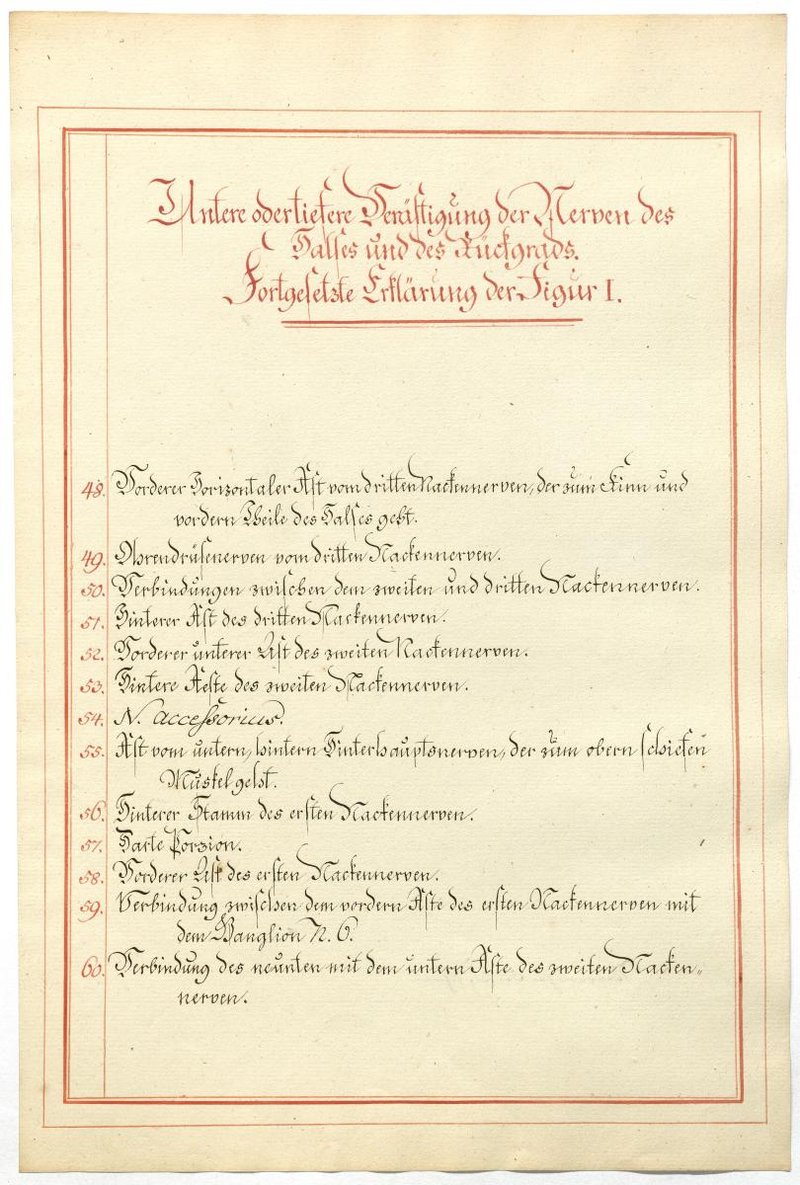 Untere oder tiefere Verästigung der Nerven des
Halses und des Rückgrads.
Fortgesetzte Erklärung der Figur I.
48. Vorderer horizontaler Ast vom dritten Nackennerven, der zum Kinn und
vordern Theile des Halses geht.
49. Ohrendrüsenerven vom dritten Nackennerven.
50. Verbindungen zwischen dem zweiten und dritten Nackennerven.
51. Hinterer Ast des dritten Nackennerven.
52. Vorderer unterer Ast des zweiten Nackennerven.
53. Hintere Aeste des zweiten Nackennerven.
54. N. accessorius.
55. Ast vom untern, hintern Hinterhauptsnerven, der zum obern schiefen
Muskel geht.
56. Hinterer Stamm des ersten Nackennerven.
57. Harte Porzion.
58. Vorderer Ast des ersten Nackennerven.
59. Verbindung zwischen dem vordern Aste des ersten Nackennerven mit
dem Ganglion N. 6.
60. Verbindung des neunten mit dem untern Aste des zweiten Nacken-
nerven.